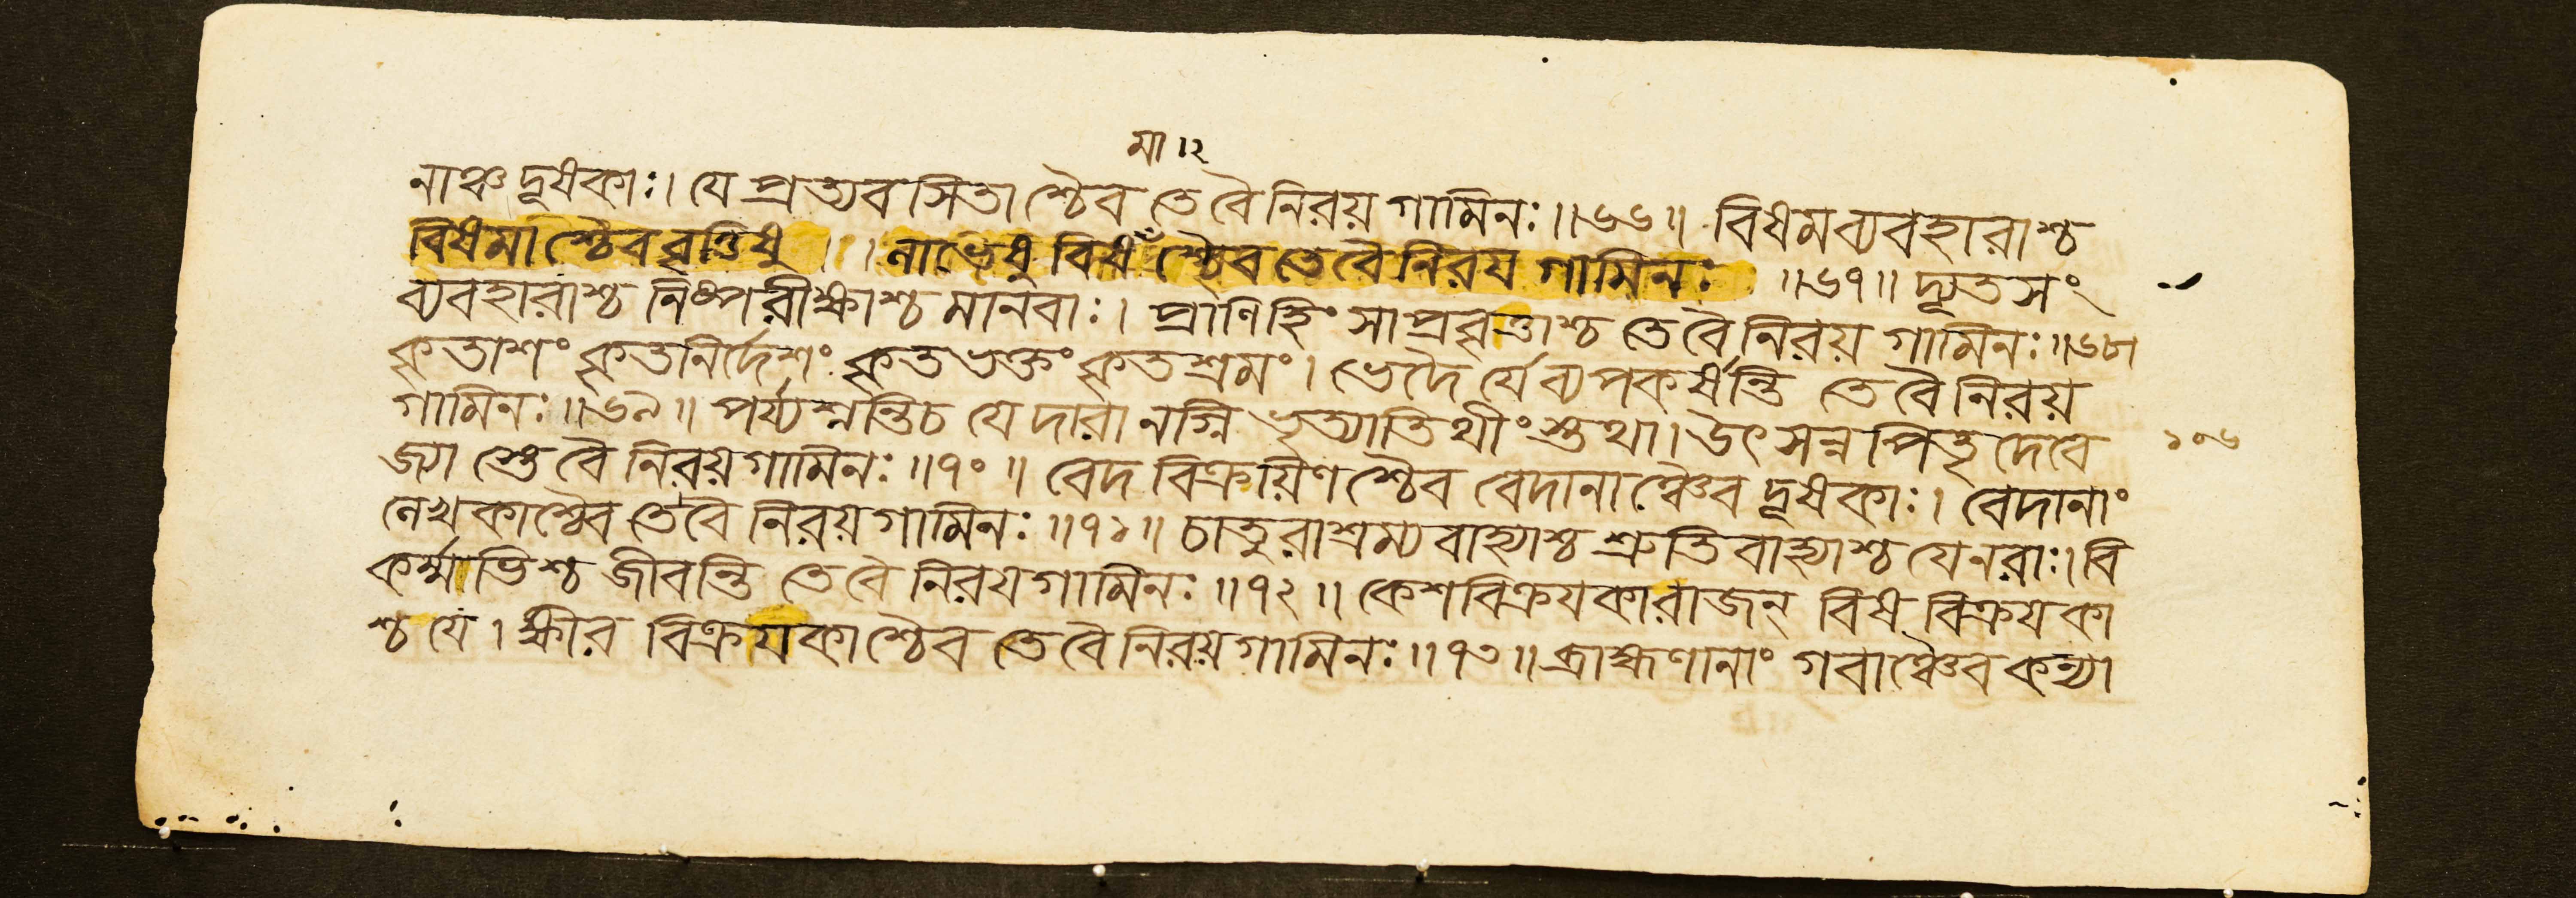 মা ।২
নাঞ্চ দূষকাঃ। যে প্রত্যবসিতাশ্চৈব তে বৈ নিরয় গামিনঃ॥৬৬॥ বিষমব্যবহারাশ্চ
বিষমাশ্চৈব বৃত্তিষু । । নাভেষু বিষমাঁশ্চৈব তে বৈ নিরয গামিনঃ ॥৬৭॥ দ্যূতসং
ব্যবহারাশ্চ নিষ্পরীক্ষাশ্চ মানবাঃ। প্রাণিহিংসাপ্রবৃত্তাশ্চ তে বৈ নিরয় গামিনঃ॥৬৮॥
কৃতাশং কৃতনির্দেশং কৃতভক্তং কৃতশ্রমং। ভেদৈর্যে ব্যপকর্ষন্তি তে বৈ নিরয়
গামিনঃ॥৬৯॥ পর্য্যশ্নন্তি চ যে দারানগ্নি ভৃত্যাতিথীংস্তথা। উৎসন্ন পিতৃ দেবে
১০৬
জ্যাস্তে বৈ নিরয়গামিনঃ॥৭০॥ বেদ বিক্রয়িণশ্চৈব বেদানাঞ্চৈব দূষকাঃ। বেদানাং
লেখকাশ্চৈব তে বৈ নিরয়গামিনঃ॥৭১॥ চাতুরাশ্রম্যবাহ্যাশ্চ শ্রুতিবাহ্যাশ্চ যে নরাঃ। বি
কর্ম্মাভিশ্চ জীবন্তি তে বৈ নিরযগামিনঃ॥৭২॥ কেশবিক্রযকা রাজন্ বিষ বিক্রযকা
শ্চ যে। ক্ষীর বিক্রযকাশ্চৈব তে বৈ নিরয়গামিনঃ॥৭৩॥ ব্রাহ্মণানাং গবাঞ্চৈব কন্যা